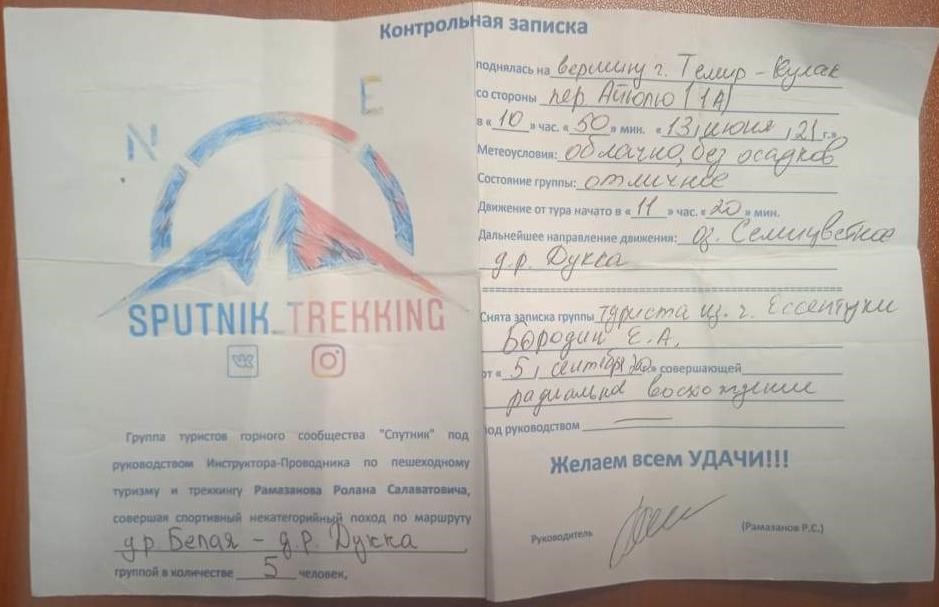 N
E
SPUTNIK_TREKKING
Группа туристов горного сообщества "Спутник" под
руководством Инструктора-Проводника по пешеходному
туризму и треккингу Рамазанова Ролана Салаватовича,
совершая спортивный некатегорийный поход по маршруту
д.р. Белая - д.р. Дукка
группой в количестве 5 человек,
Контрольная записка
поднялась на вершину г. Темир-Кулак
со стороны пер Айюлю (1А)
в « 10 » час. « 50 » мин. « 13, июня , 21 г.»
Метеоусловия: облачно, без осадков
Состояние группы: отличное
Движение от тура начато в « 11 » час. « 20 » мин.
Дальнейшее направление движения: оз. Семицветное
д.р. Дукка
Снята записка группы туриста из г. Ессентуки
Бородин Е.А.
от « 5, сентября 20» совершающей
радиальное восхождение
под руководством —
Желаем всем УДАЧИ!!!
Руководитель (Рамазанов Р.С.)